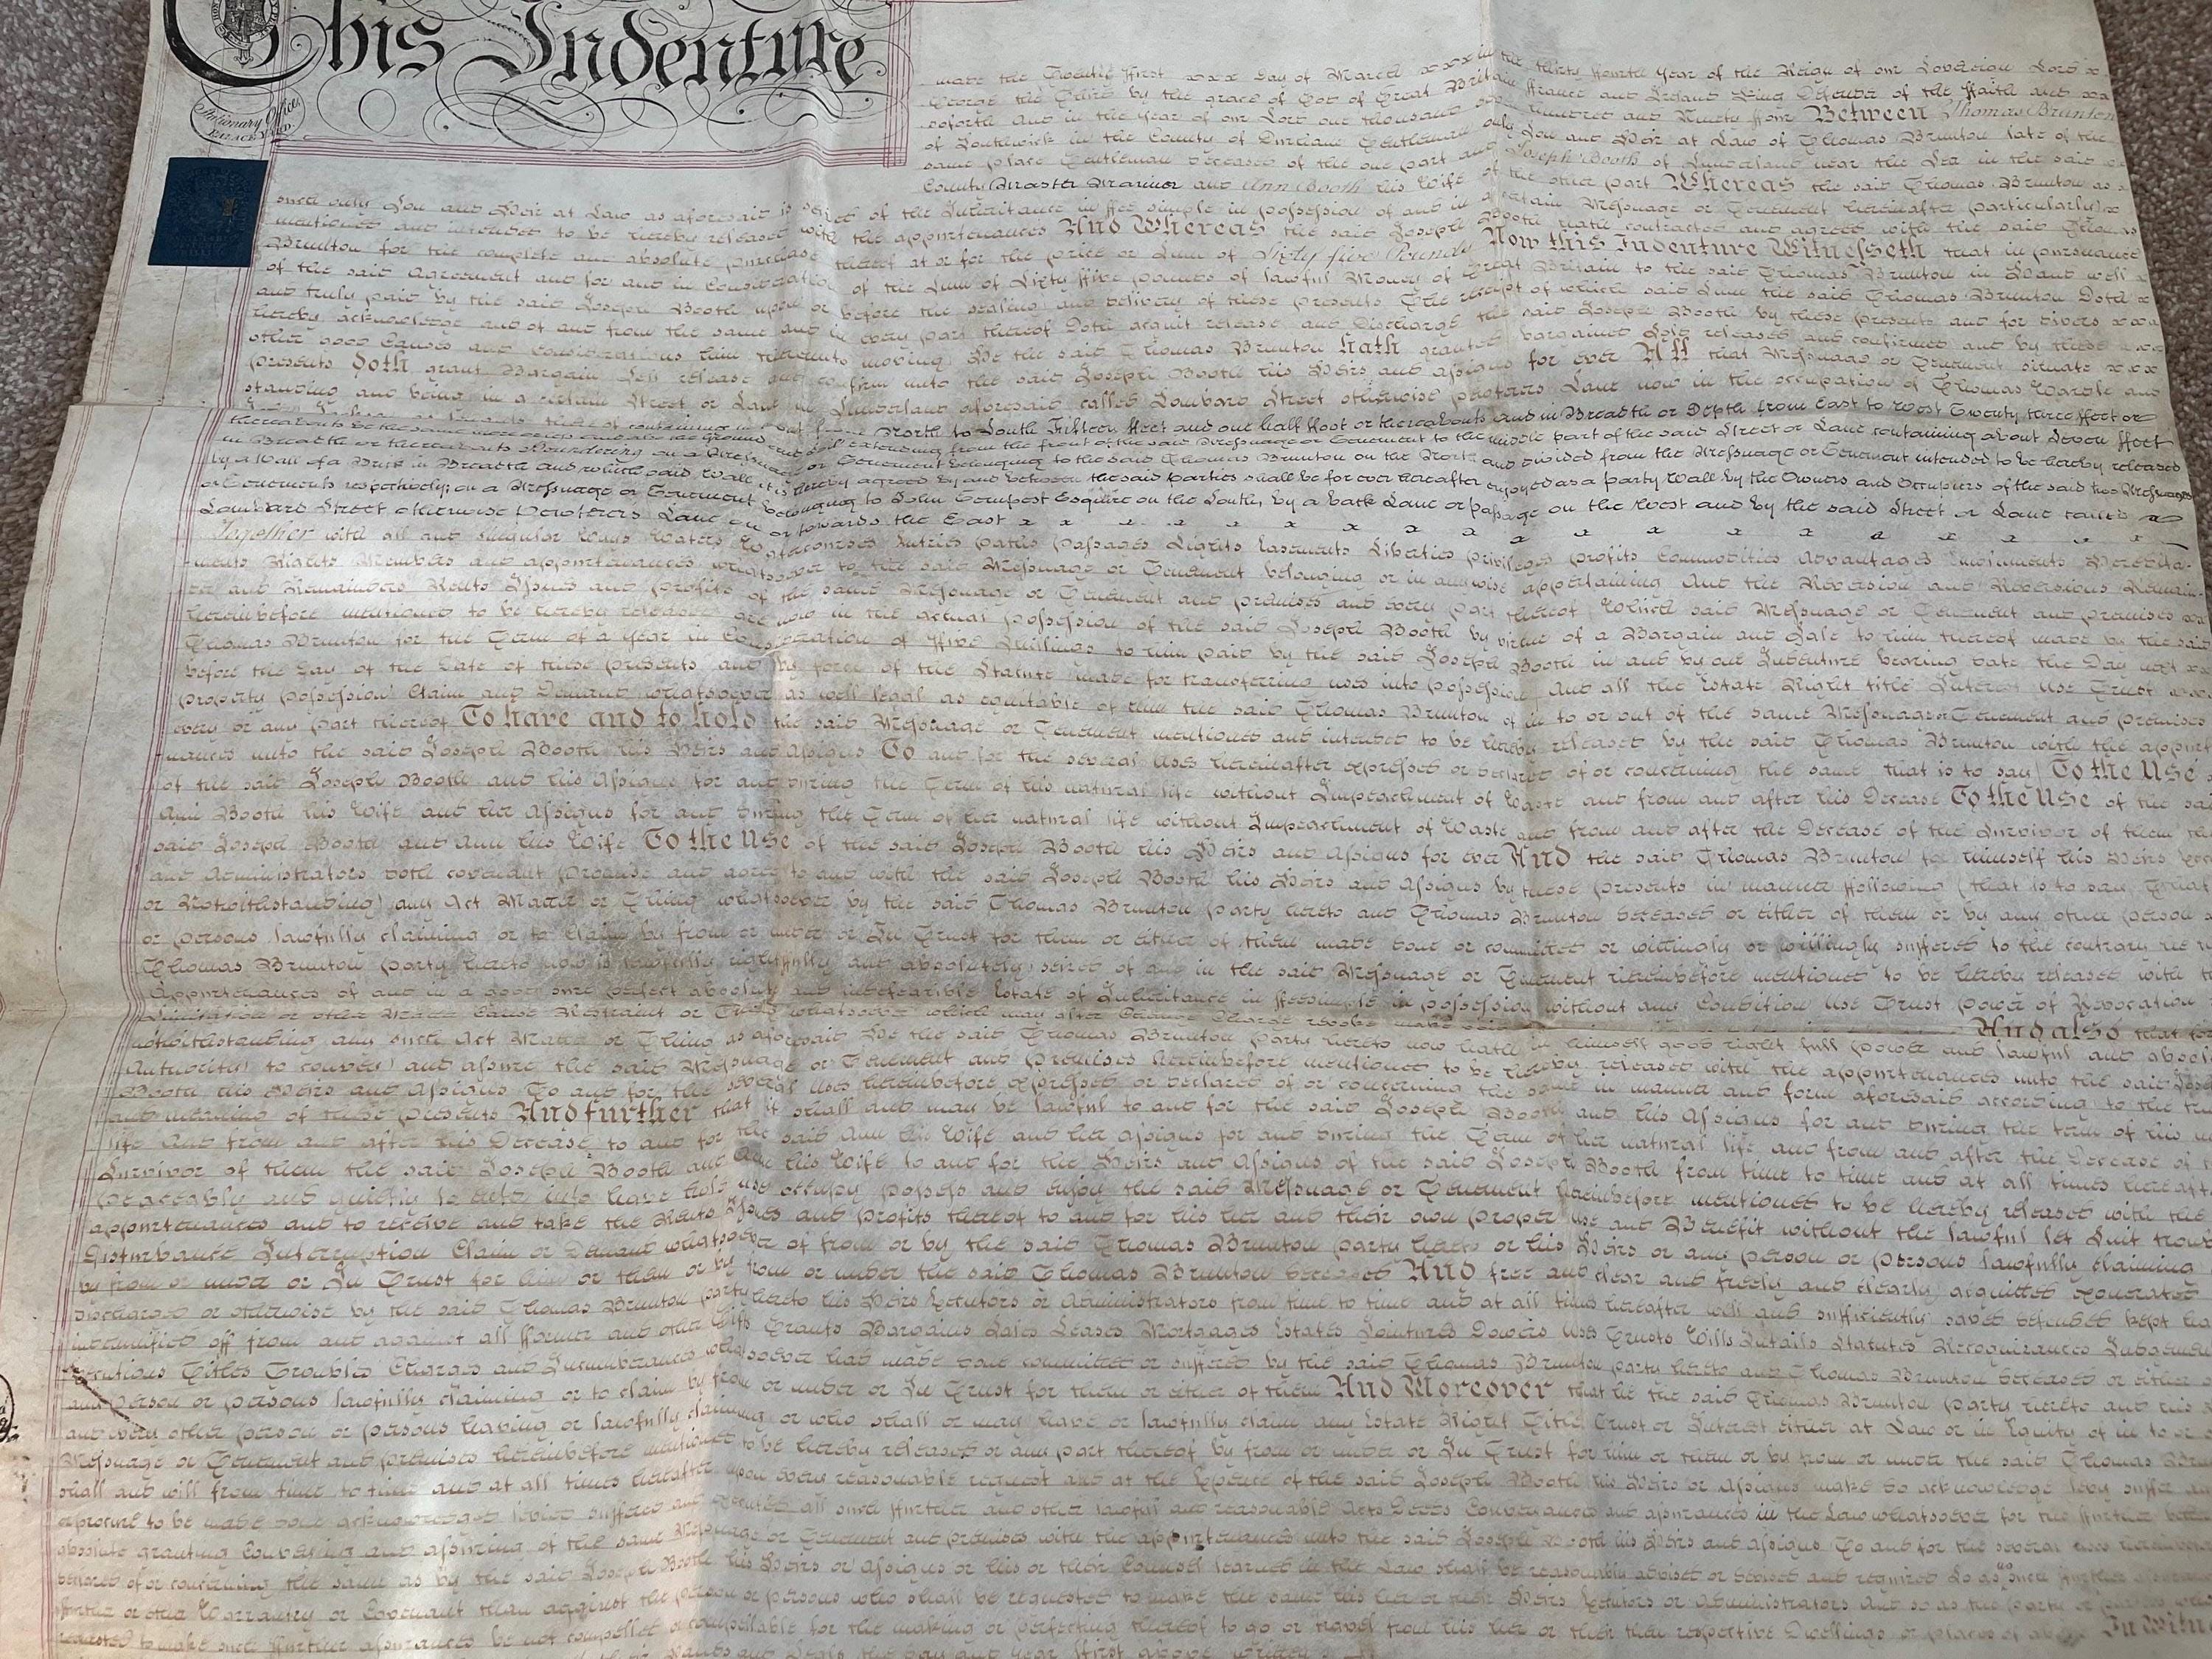 This Indenture
Stationary Office
PALACE YARD
made the Twenty ffirst x x x Day of March x x x in the thirty ffourth Year of the Reign of our Sovereign Lord x
George the Third by the grace of God of Great Britain ffrance and Ireland King Defender of the ffaith and x x
soforth and in the Year of our Lord one thousand seven hundred and Ninety ffour Between Thomas Brunton
of Southwick in the County of Durham Gentleman only Son and Heir at Law of Thomas Brunton late of the
same place Gentleman deceased of the one part and Joseph Booth of Sunderland near the Sea in the said
County Master Mariner and Ann Booth his Wife of the other part Whereas the said Thomas Brunton as
such only Son and Heir at Law as aforesaid is seized of the Inheritance in ffee simple in possession of and in a certain Messuage or Tenement hereinafter particularly x
mentioned and intended to be hereby released with the appurtenances And Whereas the said Joseph Booth hath contracted and agreed with the said Thomas
Brunton for the complete and absolute purchase thereof at or for the price or Sum of Sixty five Pounds Now this Indenture Witnesseth that in pursuance
of the said Agreement and for and in Consideration of the Sum of Sixty ffive pounds of lawful Money of Great Britain to the said Thomas Brunton in Hand well
and truly paid by the said Joseph Booth upon or before the sealing and delivery of these presents The receipt of which said Sum the said Thomas Brunton Doth x
hereby acknowledge and of and from the same and every part thereof Doth acquit release and Discharge the said Joseph Booth by these presents and for divers x x x
other good Causes and considerations him thereunto moving He the said Thomas Brunton hath granted bargained Sold released and confirmed and by these x x x
presents Doth grant Bargain Sell release and confirm unto the said Joseph Booth his Heirs and assigns for ever All that Messuage or Tenement situate x x x
standing and being in a certain Street or Lane in Sunderland aforesaid called Lombard Street otherwise Pewterers Lane now in the occupation of Thomas Wardle and
containing in ffront from North to South ffifteen ffeet and one half ffoot or thereabouts and in Breadth or Depth from East to West Twenty three ffeet or
thereabouts be the same more or less and also the Ground and Soil extending from the front of the said Messuage or Tenement to the middle part of the said Street or Lane containing about Seven ffeet
in Breadth or thereabouts Boundering on a Messuage or Tenement belonging to the said Thomas Brunton on the North and divided from the Messuage or Tenement intended to be hereby released
by a Wall of a Brick in Breadth and which said Wall it is hereby agreed by and between the said Parties shall be for ever hereafter enjoyed as a party Wall by the Owners and Occupiers of the said two Messuages
or Tenements respectively; on a Messuage or Tenement belonging to John Tempest Esquire on the South, by a back Lane or passage on the West and by the said Street or Lane called
Lombard Street otherwise Pewterers Lane on or towards the East x x x x x x x x x x x x
Together with all and singular Ways Waters Watercourses Entries paths passages Lights Easements Liberties privileges profits Commodities Advantages Emoluments Heredita-
ments Rights Members and appurtenances whatsoever to the said Messuage or Tenement belonging or in anywise appertaining And the Reversion and Reversions Remain-
der and Remainders Rents Issues and profits of the same Messuage or Tenement and premises and every part thereof Which said Messuage or Tenement and premises
hereinbefore mentioned to be hereby released are now in the actual possession of the said Joseph Booth by virtue of a Bargain and Sale to him thereof made by the said
Thomas Brunton for the Term of a Year in Consideration of ffive Shillings to him paid by the said Joseph Booth in and by one Indenture bearing date the Day next
before the Day of the Date of these presents and by force of the Statute made for transferring uses into possession And all the Estate Right title Interest Use Trust
property possession Claim and Demand whatsoever as well legal as equitable of him the said Thomas Brunton of in to or out of the same Messuage or Tenement and premises
every or any part thereof To have and to hold the said Messuage or Tenement mentioned and intended to be hereby released by the said Thomas Brunton with the appurt
nances unto the said Joseph Booth his Heirs and Assigns To and for the several Uses hereinafter expressed or declared of or concerning the same that is to say To the Use
of the said Joseph Booth and his Assigns for and during the Term of his natural life without Impeachment of Waste and from and after his Decease To the Use of the said
Ann Booth his Wife and her Assigns for and during the Term of her natural life without Impeachment of Waste and from and after the Decease of the Survivor of them the
said Joseph Booth and Ann his Wife To the Use of the said Joseph Booth his Heirs and Assigns for ever And the said Thomas Brunton for himself his Heirs
and Administrators doth covenant promise and agree to and with the said Joseph Booth his Heirs and Assigns by these presents in manner ffollowing (that is to say) That
or Notwithstanding any Act Matter or Thing whatsoever by the said Thomas Brunton party hereto and Thomas Brunton deceased or either of them or by any other person
or persons lawfully claiming or to claim by from or under or In Trust for them or either of them made done or committed or wittingly or willingly suffered to the contrary he
Thomas Brunton party hereto now is lawfully rightfully and absolutely seized of and in the said Messuage or Tenement hereinbefore mentioned to be hereby released with
Appurtenances of and in a good sure perfect absolute and indefeazible Estate of Inheritance in ffeesimple in possession without any Condition use Trust power of Revocation
Limitation or other Matter Cause Restraint or Thing whatsoever which may alter Change Charge revoke make void And also that for
notwithstanding any such Act Matter or Thing as aforesaid He the said Thomas Brunton party hereto now hath in himself good right full power and lawful and absol
Authority to convey and assure the said Messuage or Tenement and premises hereinbefore mentioned to be hereby released with the appurtenances unto the said Jose
Booth his Heirs and Assigns To and for the several uses hereinbefore expressed or declared of or concerning the same in manner and form aforesaid according to the tr
and meaning of these presents And further that it shall and may be lawful to and for the said Joseph Booth and his Assigns for and during the term of his
life and from and after his Decease to and for the said Ann his Wife and her assigns for and during the Term of her natural life and from and after the Decease of
Survivor of them the said Joseph Booth and Ann his Wife to and for the Heirs and Assigns of the said Joseph Booth from time to time and at all times hereaft
peaceably and quietly to enter into have hold use occupy possess and enjoy the said Messuage or Tenement hereinbefore mentioned to be hereby released with the
appurtenances and to receive and take the Rents Issues and profits thereof to and for his her and their own proper use and Benefit without the lawful let Suit trou
Disturbance Interruption Claim or Demand whatsoever of from or by the said Thomas Brunton party hereto or his Heirs or any person or persons lawfully claiming
by from or under or In Trust for him or them or by from or under the said Thomas Brunton deceased And free and clear and freely and clearly acquitted exonerated
discharged or otherwise by the said Thomas Brunton party hereto his Heirs Executors or Administrators from time to time and at all times hereafter well and sufficiently saved defended kept
indemnified off from and against all fformer and other Gifts Grants Bargains Sales Leases Mortgages Estates Jointures Dowers Uses Trusts Wills Intails Statutes Recognizances Judgmen
Executions Titles Troubles Charges and Incumbrances whatsoever had made done committed or suffered by the said Thomas Brunton party hereto and Thomas Brunton deceased or either
any person or persons lawfully claiming or to claim by from or under or In Trust for them or either of them And Moreover that he the said Thomas Brunton party hereto and his
and every other person or persons having or lawfully claiming or who shall or may have or lawfully claim any Estate Right Title Trust or Interest either at Law or in Equity of in to or
Messuage or Tenement and premises hereinbefore mentioned to be hereby released or any part thereof by from or under or In Trust for him or them or by from or under the said Thomas Brun
shall and will from time to time and at all times hereafter upon every reasonable request and at the Expence of the said Joseph Booth his Heirs or Assigns make do acknowledge levy suffer
or procure to be made done acknowledged levied suffered and executed all such ffurther and other lawful and reasonable Acts Deeds Conveyances and assurances in the Law whatsoever for the ffurther better
absolute granting Conveying and assuring of the same Messuage or Tenement and premises with the appurtenances unto the said Joseph Booth his Heirs and assigns To and for the several uses
declared of or concerning the same as by the said Joseph Booth his Heirs or Assigns or his or their Counsel learned in the Law shall be reasonably advised or devised and required So as such ffurther
ffurther or other Warranty or Covenant than against the person or persons who shall be requested to make the same his her or their Heirs Executors or Administrators and so as the party
requested to make such ffurther assurances be not compelled or compellable for the making or perfecting thereof to go or travel from his her or their then respective Dwellings or places of In Witn
Hands and Seals the day and year ffirst above written